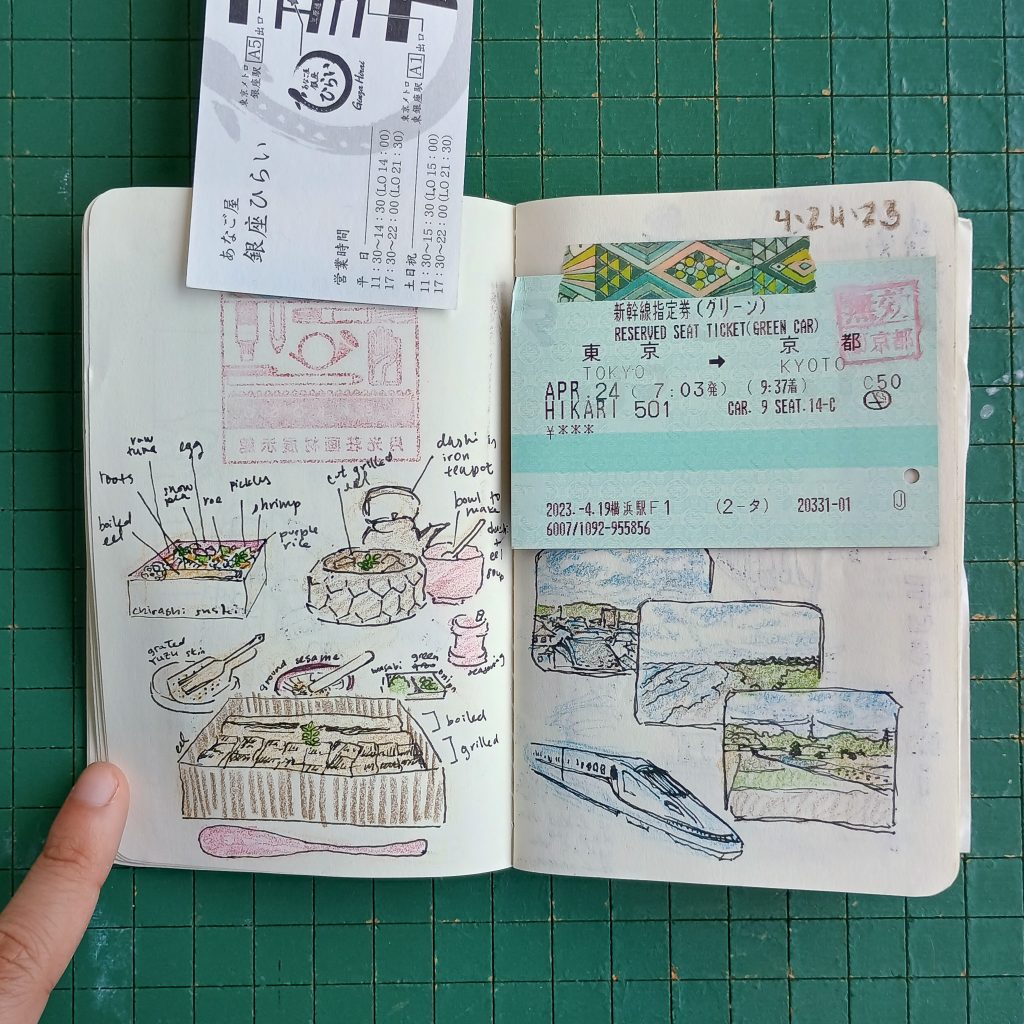 東京メトロ
銀座駅 A5 出口
東京メトロ
東銀座駅 A1 出口
あなご屋
銀座
ひらい
Ginza Hirai
あなご屋
銀座ひらい
営業時間
平 日
11:30〜14:30 (LO 14:00)
17:30〜22:00 (LO 21:30)
土日祝
11:30〜15:30 (LO 15:00)
17:30〜22:00 (LO 21:30)
raw
tuna
egg
roots
snow
pea
roe
pickles
shrimp
boiled
eel
purple
rice
chirashi sushi
cut grilled
eel
dashi in
iron
teapot
bowl to
make
dashi
+
eel
soup
grated
yuzu skin
ground sesame
wasabi
green
onion
seasoning
eel
boiled
grilled
4.24.23
新幹線指定券(グリーン)
RESERVED SEAT TICKET(GREEN CAR)
東 京 → 京 都
TOKYO KYOTO
APR.24 ( 7:03発) ( 9:37着) C50
HIKARI 501 CAR. 9 SEAT.14-C
¥***
2023.-4.19横浜駅F1 (2-タ) 20331-01
6007/1092-955856
京都